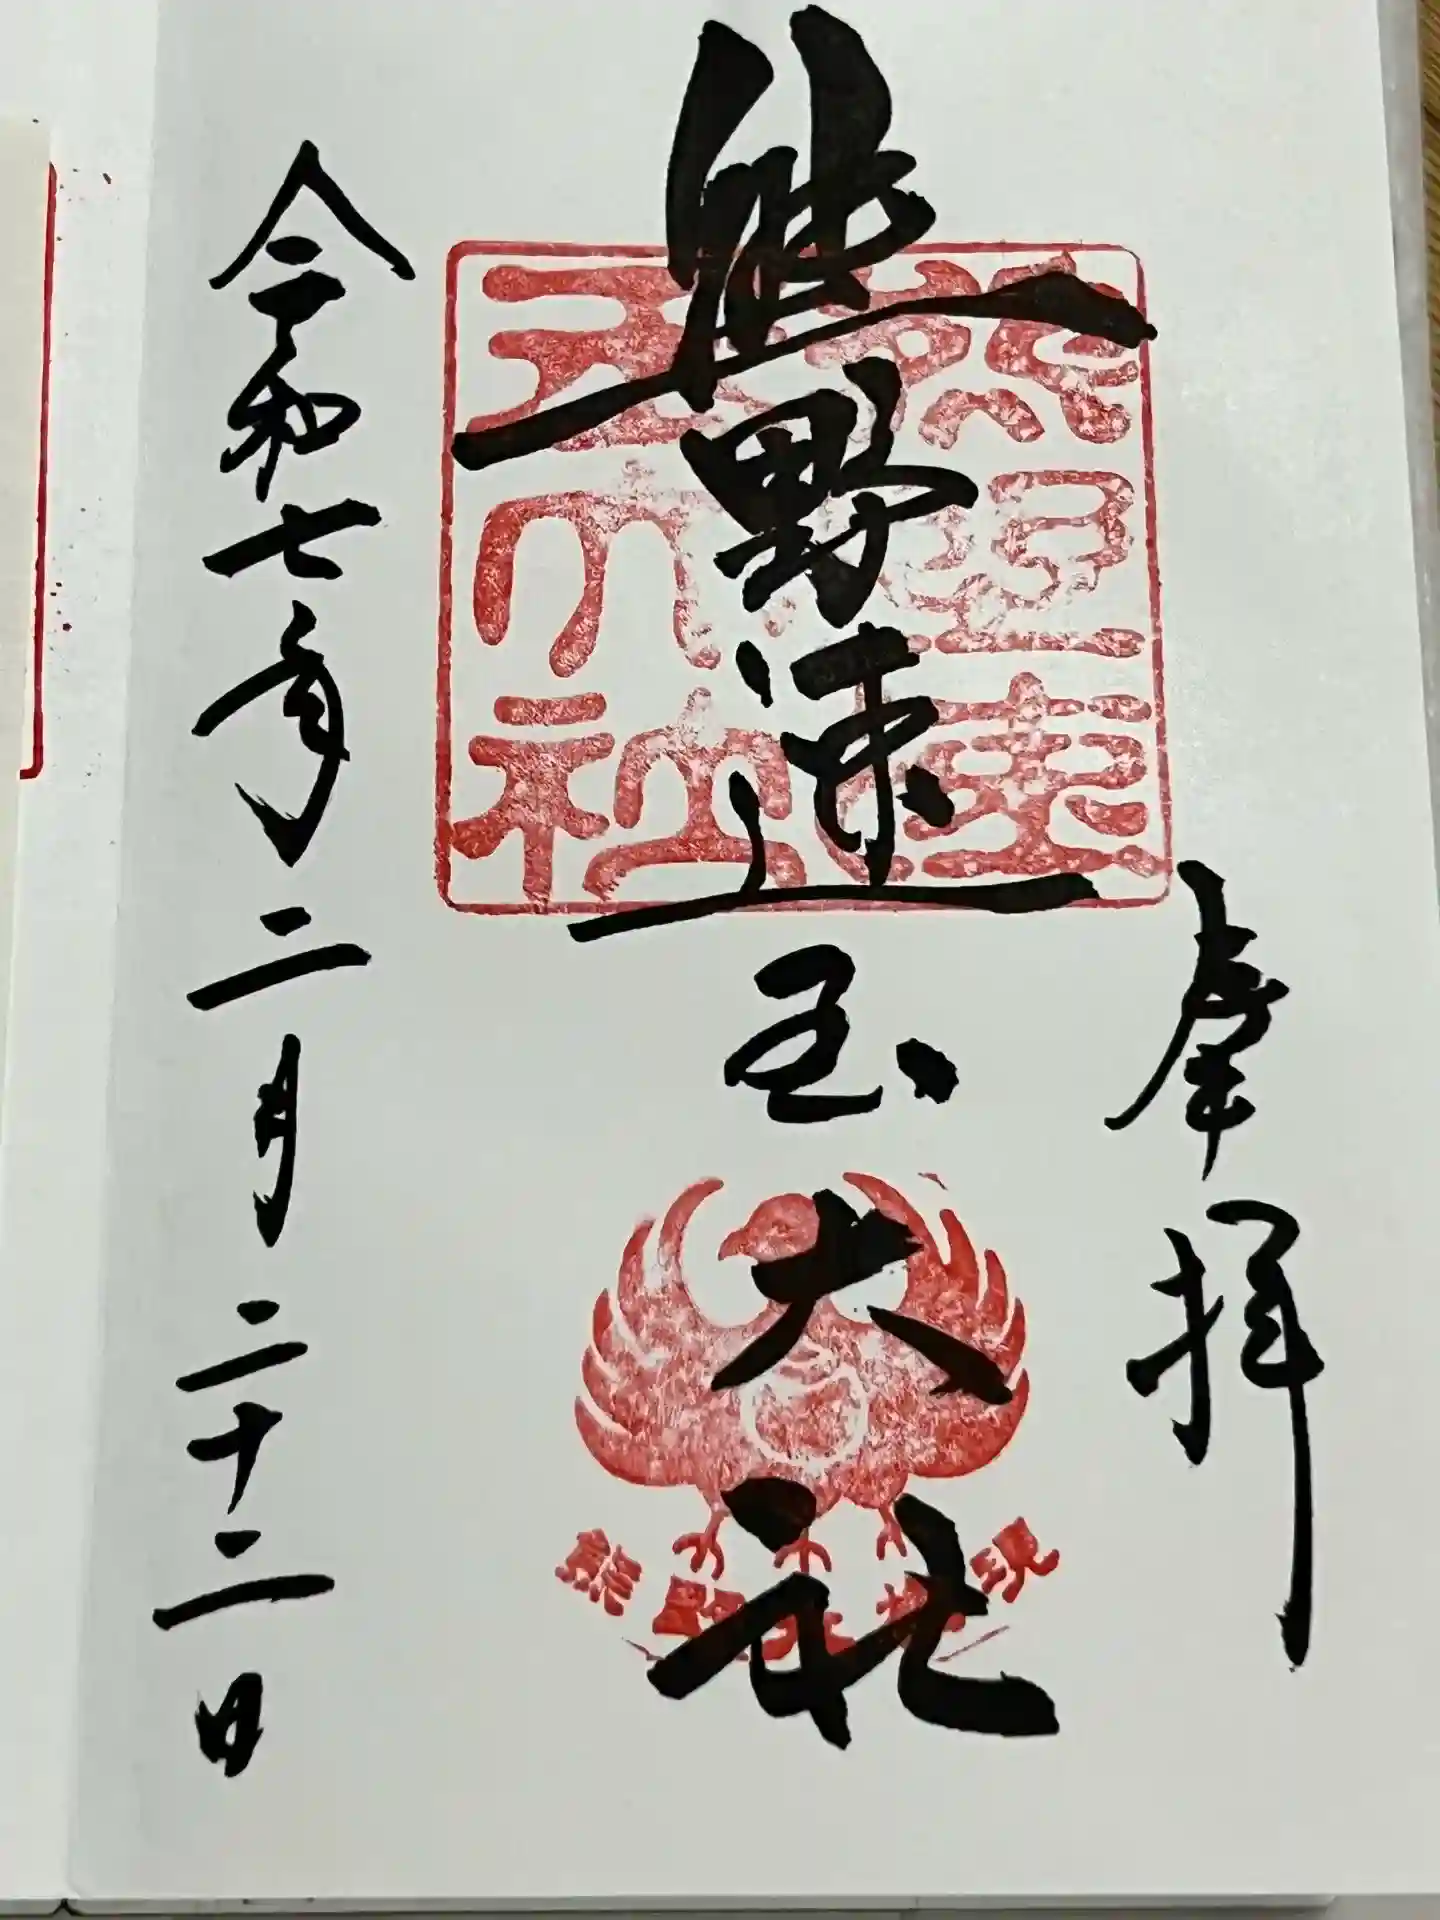 奉拝
熊野速玉大社
熊野速玉大社
熊野大権現
令和七年二月二十二日